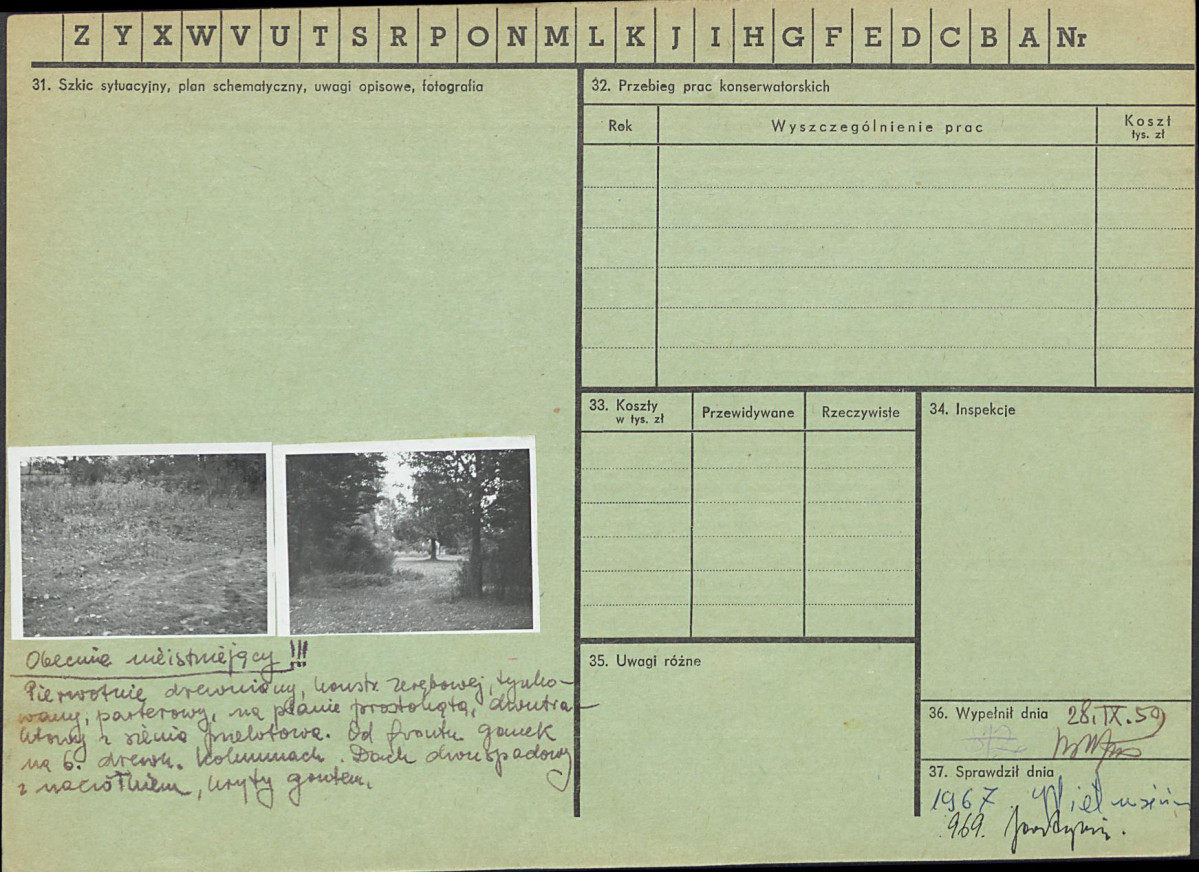 Z Y X W V U T S R P O N M L K J I H G F E D C B A Nr
31. Szkic sytuacyjny, plan schematyczny, uwagi opisowe, fotografia
Obecnie nieistniejący !!!
Pierwotnie drewniany, konstr. zrębowej, tynko-
wany, parterowy, na planie prostokąta, dwutra-
ktowy z sienią przelotową. Od frontu ganek
na 6. drewn. kolumnach. Dach dwuspadowy
z naczółkiem, kryty gontem.
32. Przebieg prac konserwatorskich
Rok Wyszczególnienie prac Koszt
tys. zł
33. Koszty
w tys. zł
Przewidywane Rzeczywiste
34. Inspekcje
35. Uwagi różne
36. Wypełnił dnia 28.IX.59
37. Sprawdził dnia
1967
969.